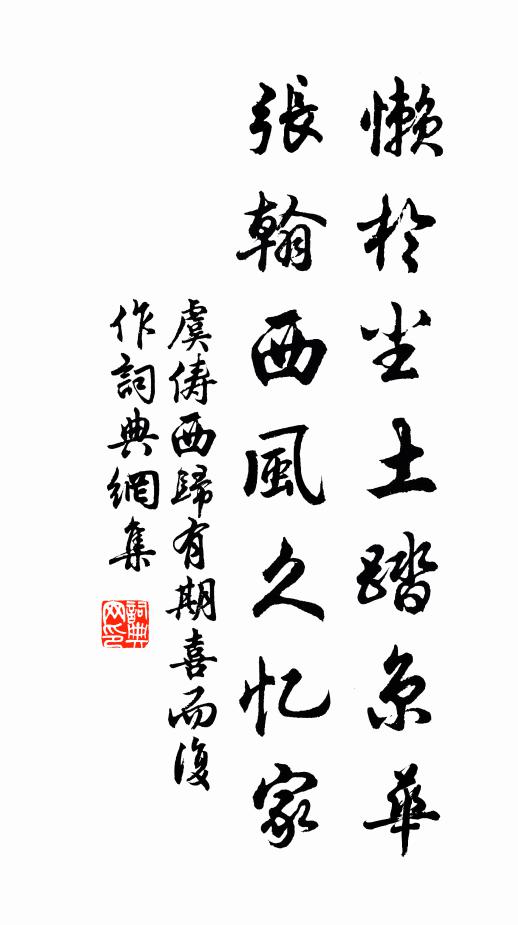 懒於尘土踏京華
張翰西風久忆家
虞俦西歸有期喜而復
作詞典網集
詞典網印